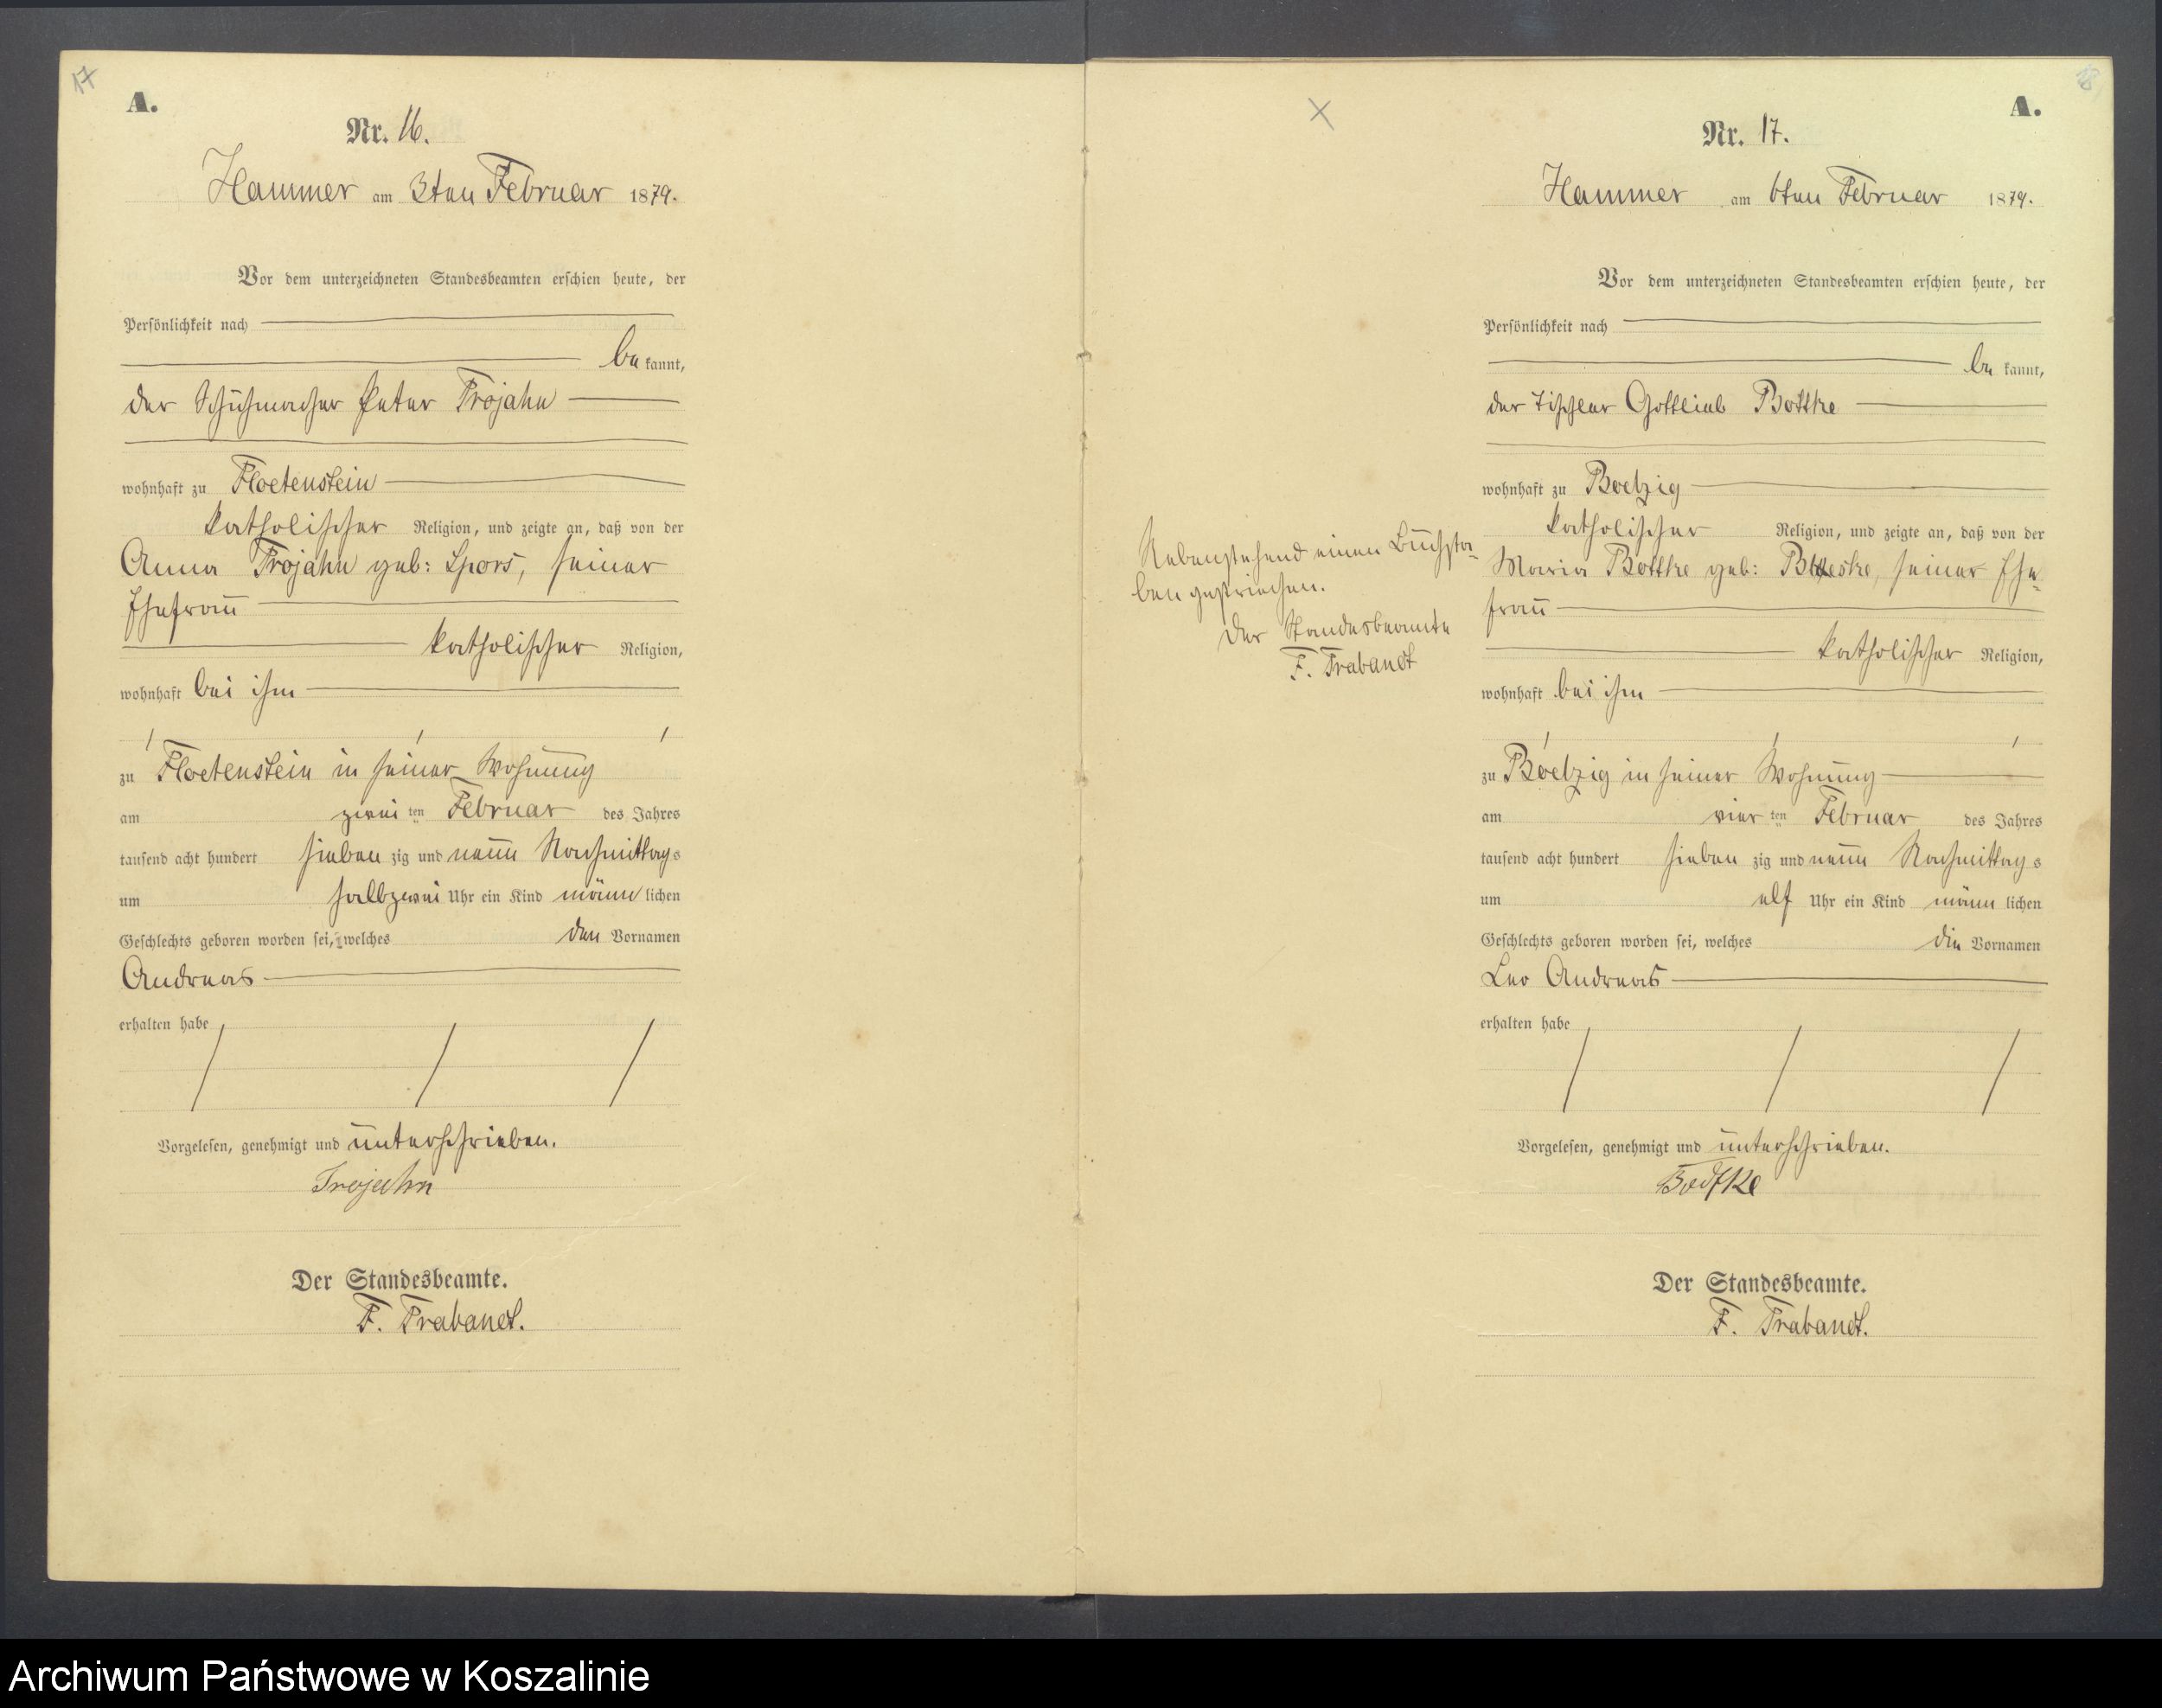 17
A.
Nr. 16.
Hammer am 3ten Februar 1879.
Vor dem unterzeichneten Standesbeamten erschien heute, der
Persönlichkeit nach
be kannt,
der Schuhmacher Peter Trojahn
wohnhaft zu Floetenstein
katholischer Religion, und zeigte an, daß von der
Anna Trojahn geb: Spors, seiner
Ehefrau
katholischer Religion,
wohnhaft bei ihm
zu Floetenstein in seiner Wohnung
am zwei ten Februar des Jahres
tausend acht hundert sieben zig und neun Nachmittags
um halbzwei Uhr ein Kind männ lichen
Geschlechts geboren worden sei, welches den Vornamen
Andreas
erhalten habe
Vorgelesen, genehmigt und unterschrieben.
Trojahn
Der Standesbeamte.
F. Trabandt.
18
A.
Nr. 17.
Hammer am 6ten Februar 1879.
Vor dem unterzeichneten Standesbeamten erschien heute, der
Persönlichkeit nach
be kannt,
der Tischler Gottlieb Bottke
wohnhaft zu Boelzig
katholischer Religion, und zeigte an, daß von der
Maria Bottke geb: seiner Ehe-
frau
katholischer Religion,
wohnhaft bei ihm
zu Boelzig in seiner Wohnung
am vier ten Februar des Jahres
tausend acht hundert sieben zig und neun Nachmittags
um elf Uhr ein Kind männ lichen
Geschlechts geboren worden sei, welches die Vornamen
Leo Andreas
erhalten habe
Vorgelesen, genehmigt und unterschrieben.
Der Standesbeamte.
F. Trabandt.
Nebenstehend einen Buchsta-
ben gestrichen.
Der Standesbeamte
F. Trabandt
Archiwum Państwowe w Koszalinie